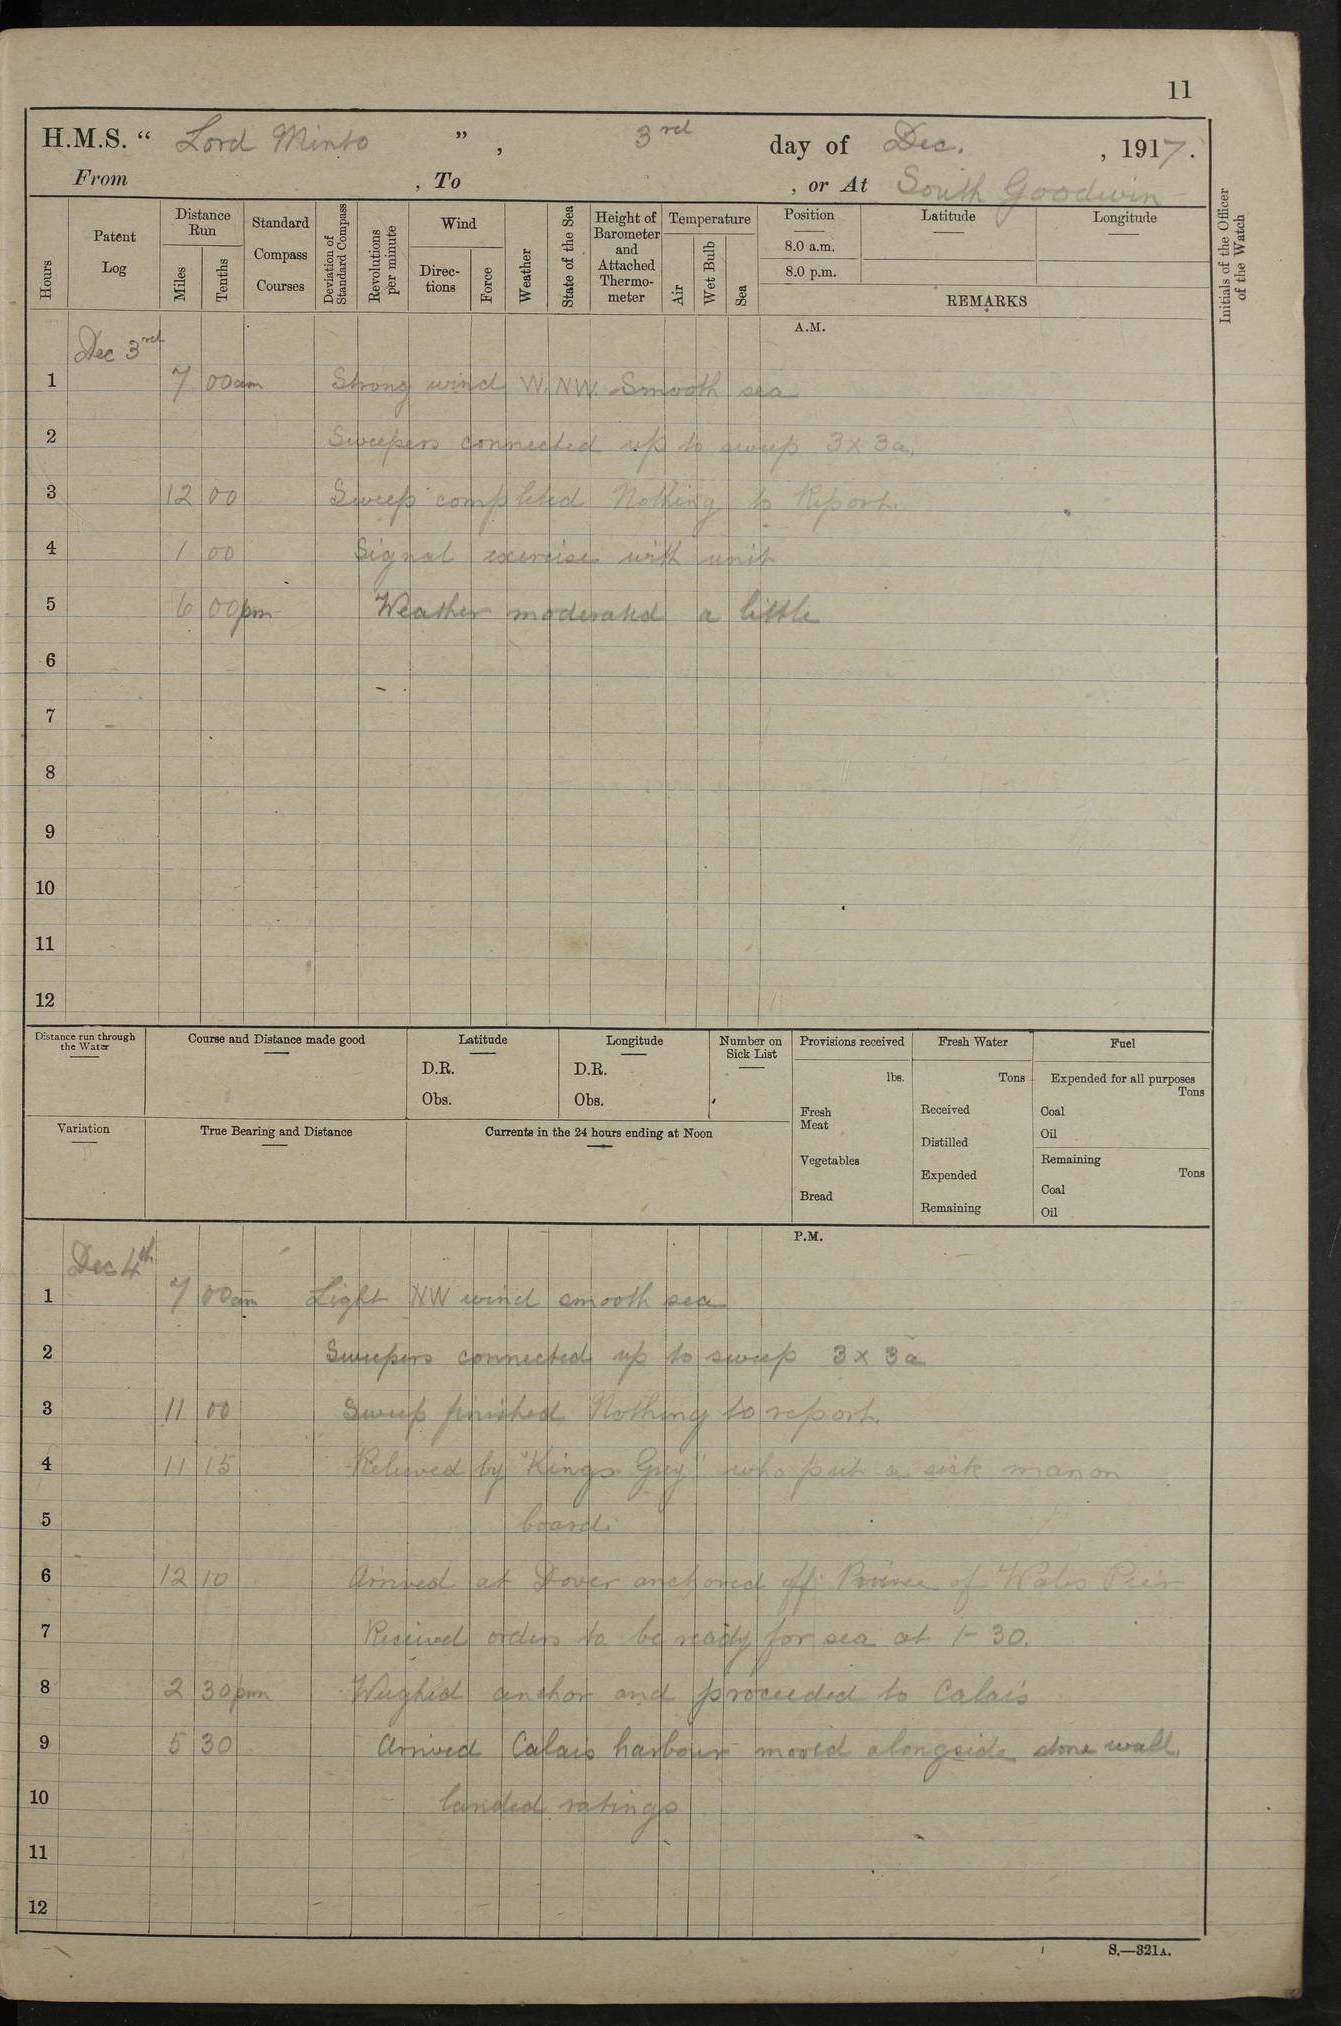 11
H.M.S. “ Lord Minto ” , 3rd day of Dec. , 1917.
From , To , or At South Goodwin
Hours
Patent Log
Distance Run
Miles
Tenths
Standard Compass Courses
Deviation of Standard Compass
Revolutions per minute
Wind
Direc-tions
Force
Weather
State of the Sea
Height of Barometer and Attached Thermo-meter
Temperature
Air
Wet Bulb
Sea
Position
8.0 a.m.
8.0 p.m.
Latitude
Longitude
REMARKS
Initials of the Officer of the Watch
A.M.
Dec 3rd
1 7 00am Strong wind W.NW. Smooth sea
2 Sweepers connected up to sweep 3 x 3a.
3 12 00 Sweep completed Nothing to Report.
4 1 00 Signal exercise with unit
5 6 00pm Weather moderated a little
6
7
8
9
10
11
12
Distance run through the Water
Course and Distance made good
Latitude
D.R.
Obs.
Longitude
D.R.
Obs.
Number on Sick List
Provisions received
lbs.
Fresh Meat
Vegetables
Bread
Fresh Water
Tons
Received
Distilled
Expended
Remaining
Fuel
Expended for all purposes
Tons
Coal
Oil
Remaining
Tons
Coal
Oil
Variation
True Bearing and Distance
Currents in the 24 hours ending at Noon
P.M.
Dec 4th
1 7 00am Light NW wind smooth sea
2 Sweepers connected up to sweep 3 x 3a
3 11 00 Sweep finished Nothing to report.
4 11 15 Relieved by "Kings Grey" who put a sick man on
5 board.
6 12 10 Arrived at Dover anchored off Prince of Wales Pier
7 Received orders to be ready for sea at 1-30.
8 2 30pm Weighed anchor and proceeded to Calais
9 5 30 Arrived Calais harbour moored alongside stone wall.
10 landed ratings
11
12
S.—321A.